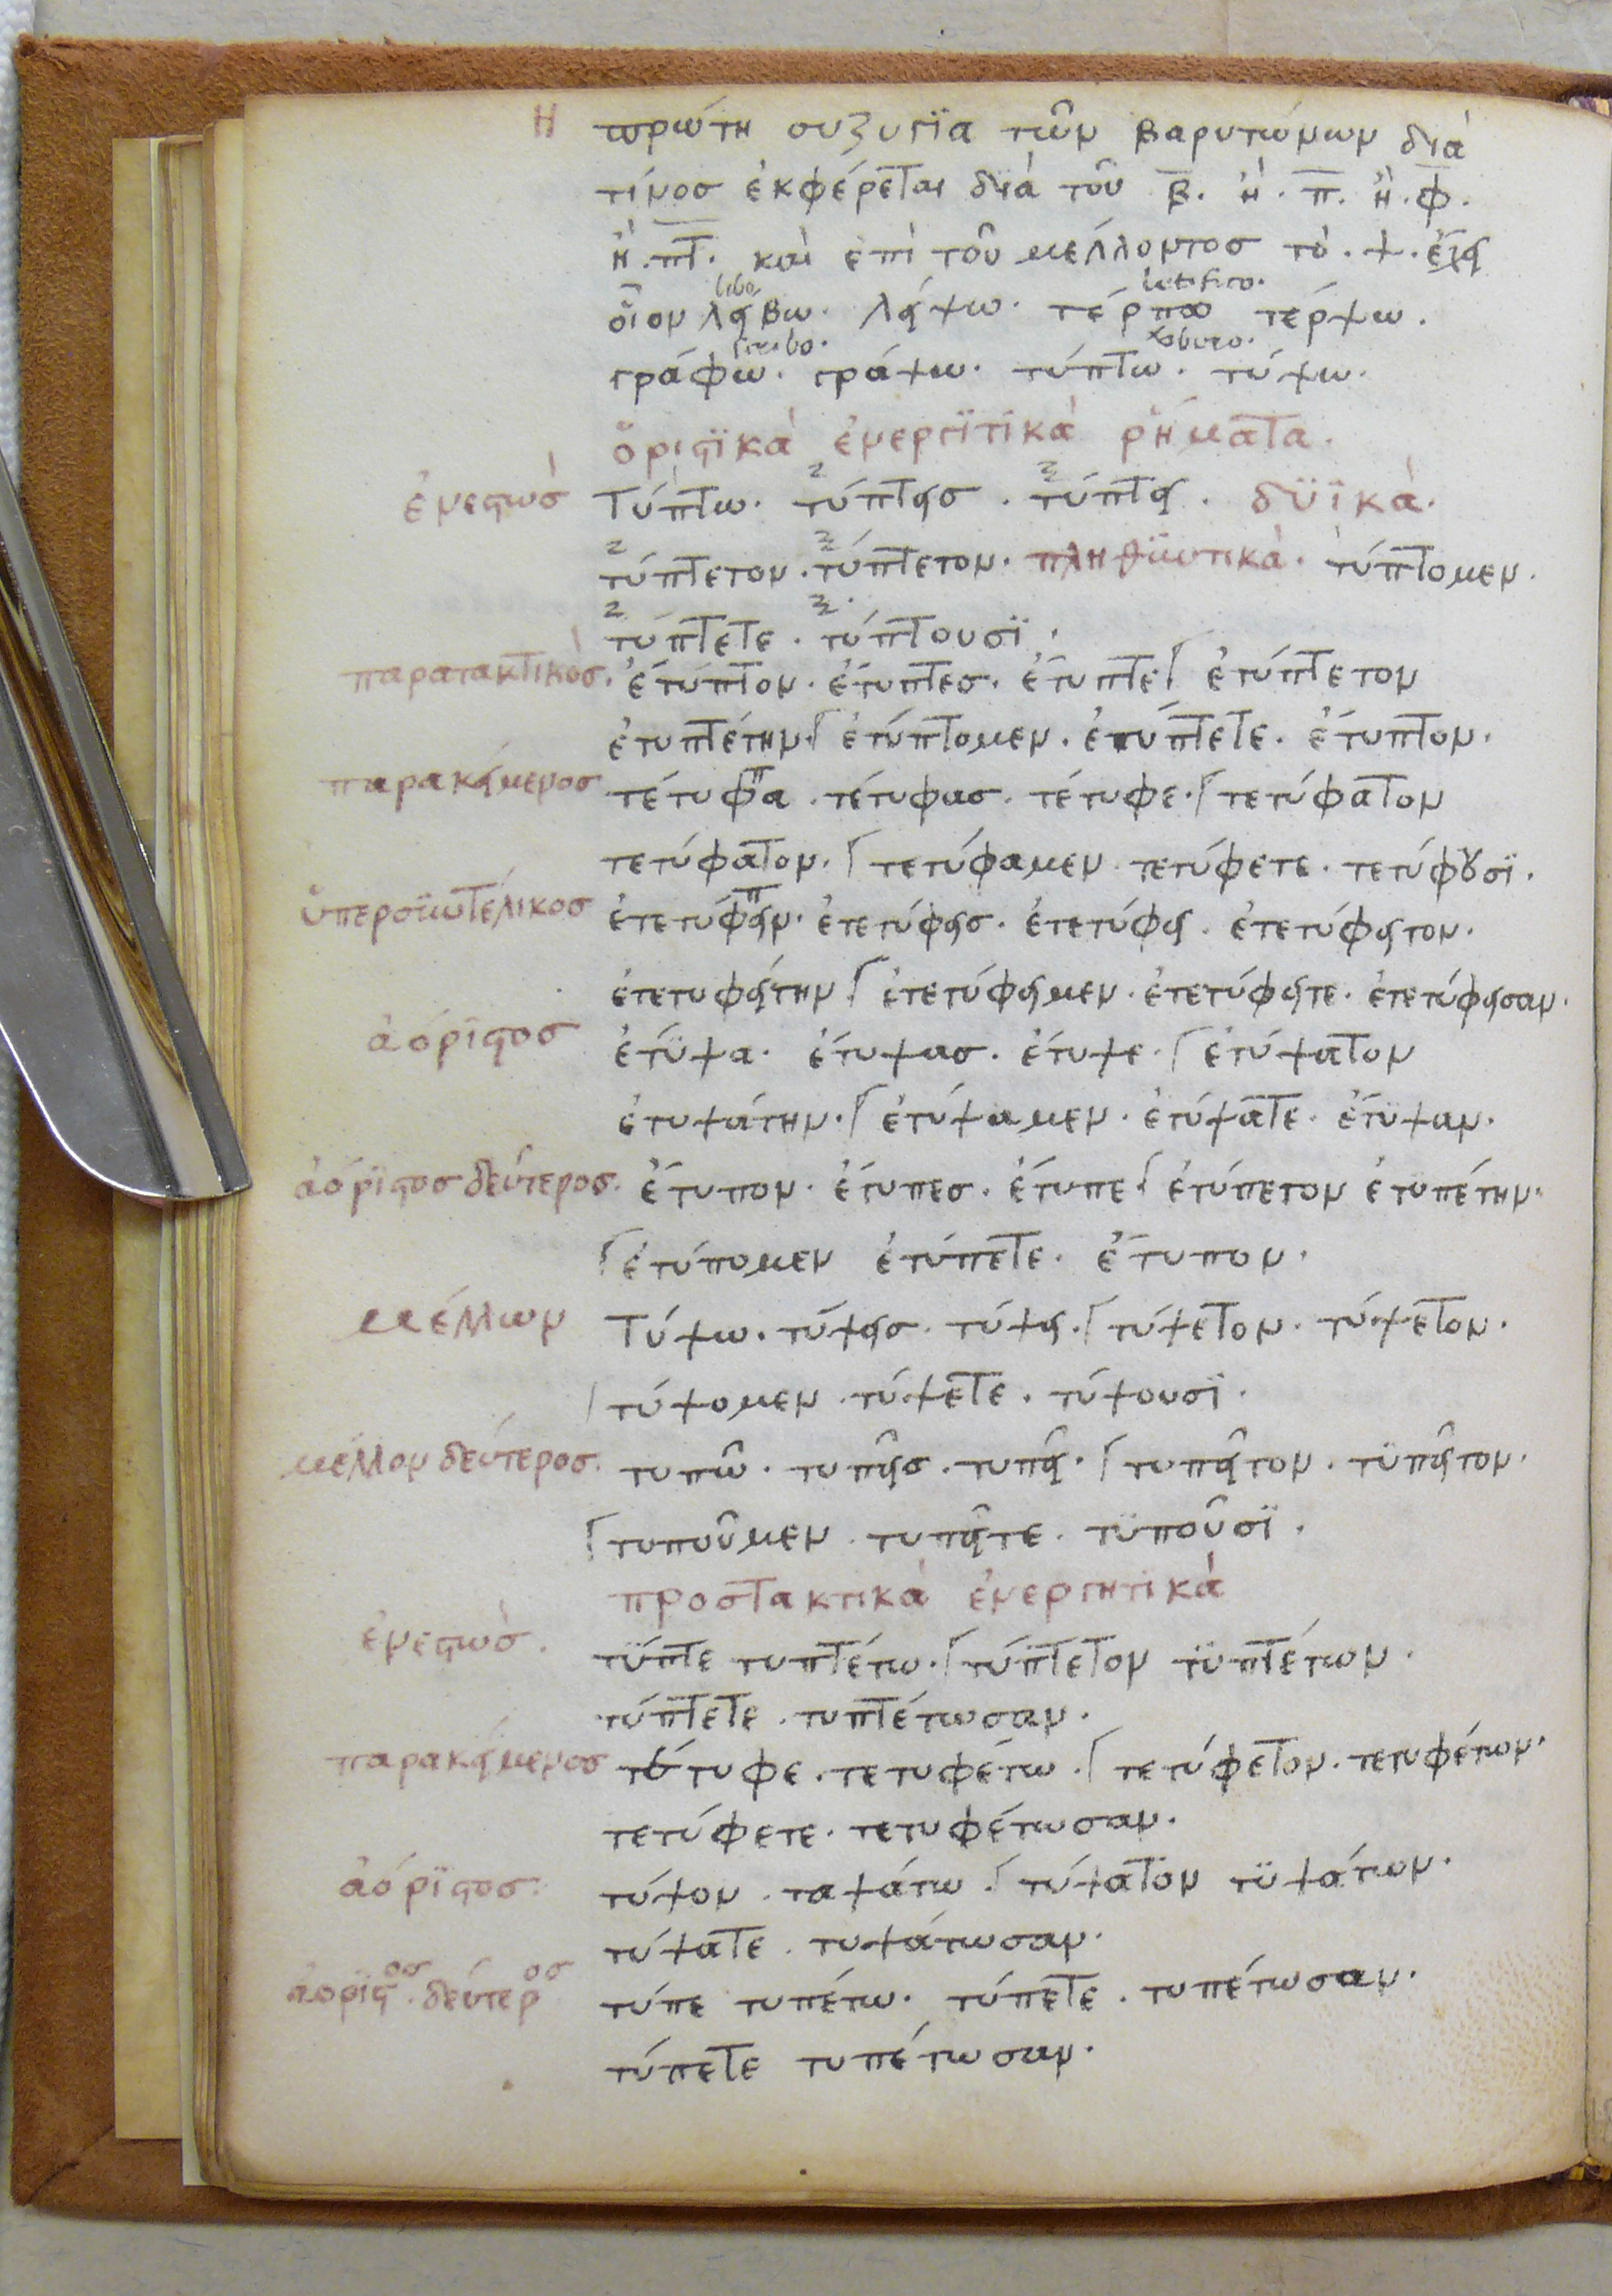 Η πρώτη συζυγϊα τῶν βαρυτώνων διὰ
τίνοσ ἐκφέρεται διὰ τοῦ β. ἠ. π. ἢ. φ.
ἢ. πτ. καὶ ἐπὶ τοῦ μέλλοντοσ τὸ. ψ. ἔχει
libo letifico.
οἷον λείβω. λείψω. τέρπω τέρψω.
scribo.
γράφω. γράψω. τύπτω. τύψω.
ὁριστϊκὰ ἐνεργϊτικὰ ῥήματα.
ἐνεστωὸσ Τύπτω. τύπτεισ. τύπτει. δϋϊκὰ.
2 3
τύπτετον. τύπτετον. πληθϋντικὰ. τύπτομεν.
2 3
τύπτετε. τύπτουσϊ.
παρατακτικὸσ. ἐτύπτον. ἐτυπτεσ. ἐτυπτε ἐτύπτετον
ἐτυπτέτην. ἐτύπτομεν. ἐτύπτετε. ἐτυπτον.
παρακείμενοσ τέτυφα. τέτυφασ. τέτυφε. τετύφατον
τετύφατον. τετύφαμεν τετύφετε. τετύφουσϊ.
ὑπερσϋωτέλικοσ ἐτετύφειν. ἐτετύφεισ. ἐτετύφει. ἐτετύφειτον.
ἐτετυφείτην ἐτετύφειμεν. ἐτετύφειτε. ἐτετύφεισαν.
ἀόριστοσ ἐτϋψα. ἔτυψασ. ἔτυψε. ἐτύψατον
ἐτυψάτην. ἐτύψαμεν. ἐτύψατε. ἔτϋψαν.
ἀόρϊστοσ δεύτεροσ. ἔτυπον. ἔτυπεσ. ἔτυπε ἐτύπετον ἐτυπέτην.
ἐτύπομεν ἐτύπετε. ἔτυπον.
μέλλων Τύψω. τύψεισ. τύψει. τύψετον. τύψετον.
τύψομεν. τύψετε. τύψουσϊ.
μέλλον δεύτεροσ. τυπῶ. τυπεῖσ. τυπεῖ. τυπεῖτον. τϋπεῖτον.
τυποῦμεν. τυπεῖτε. τϋποῦσϊ.
προστακτικὰ ἐνεργητικὰ
ἐνεστωὸσ. τύπτε τυπτέτω. τύπτετον τϋπτέτων.
τύπτετε. τυπτέτωσαν.
παρακείμενοσ τέτυφε. τετυφέτω. τετύφετον. τετυφέτων.
τετύφετε. τετυφέτωσαν.
ἀόρϊστοσ. τύψον. ταψάτω. τύψατον τϋψάτων.
τύψατε. τυψάτωσαν.
ἀορϊστοσ. δεύτεροσ τύπε τυπέτω. τύπετε. τυπέτωσαν.
τύπετε τυπέτωσαν.